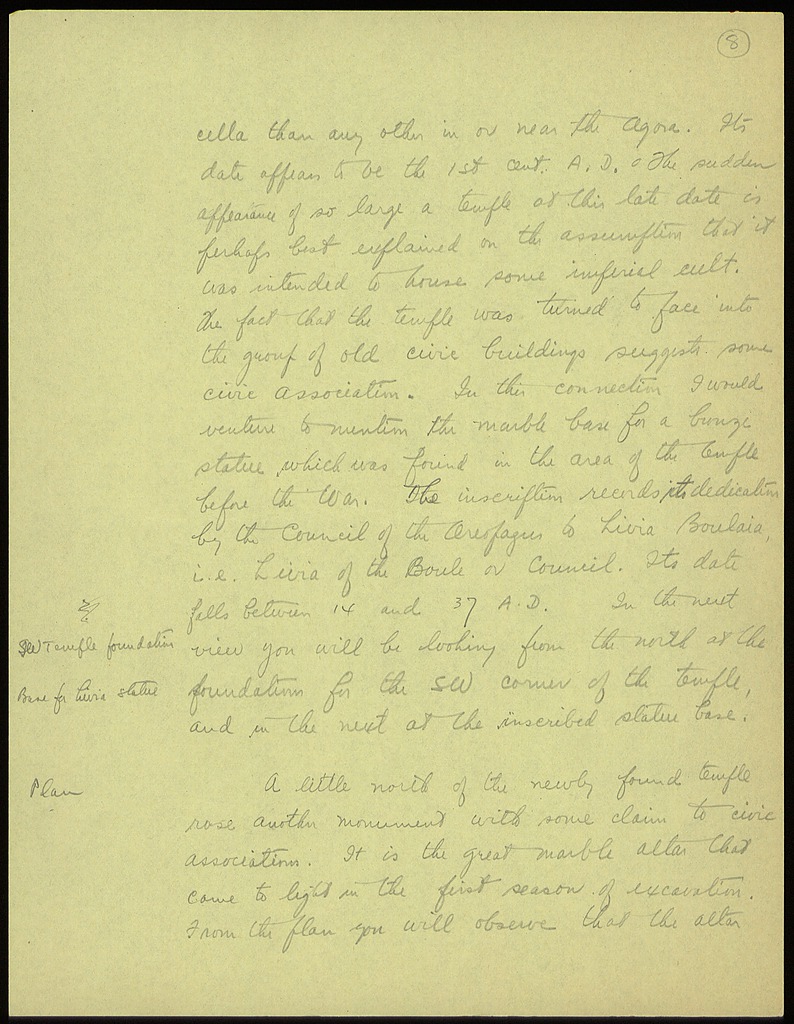 8
cella than any other in or near the Agora. Its
date appears to be the 1st cent. A.D. The sudden
appearance of so large a temple at this late date is
perhaps best explained on the assumption that it
was intended to house some imperial cult.
The fact that the temple was turned to face into
the group of old civic buildings suggests some
civic association. In this connection I would
venture to mention the marble base for a bronze
statue which was found in the area of the temple
before the War. The inscription records its dedication
by the Council of the Areopagus to Livia Boulaia,
i.e. Livia of the Boule or Council. Its date
falls between 14 and 37 A.D. In the next
SW Temple foundation
view you will be looking from the north at the
Base for Livia statue
foundations for the SW corner of the temple,
and in the next at the inscribed statue base.
Plan
A little north of the newly found temple
rose another monument with some claim to civic
association. It is the great marble altar that
came to light in the first season of excavation.
From the plan you will observe that the altar